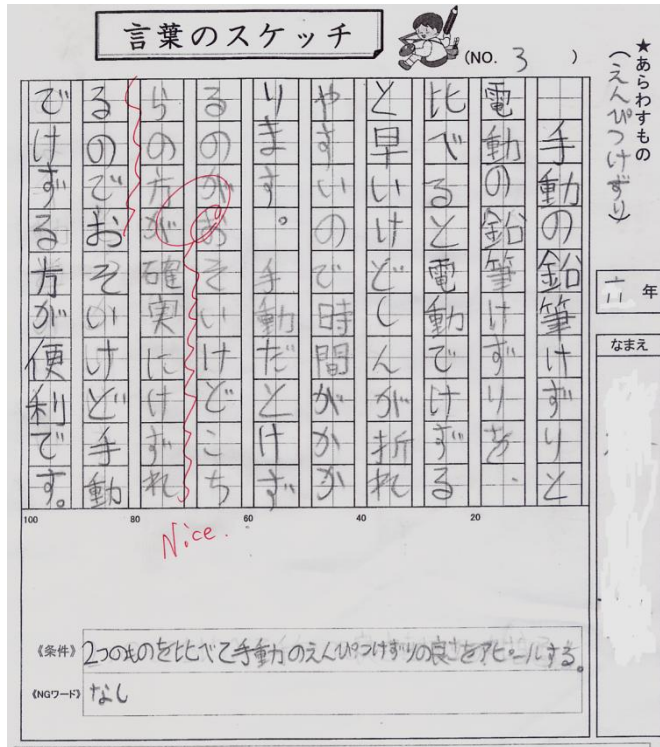 言葉のスケッチ
(NO. 3 )
★あらわすもの
(えんぴつけずり)
六年
なまえ
手動の鉛筆けずりと
電動の鉛筆けずりを
比べると電動でけずる
と早いけどしんが折れ
やすいので時間がかか
ります。手動だとけず
るのがおそいけどこち
らの方が確実にけずれ
るのでおそいけど手動
でけずる方が便利です。
100 80 60 40 20
Nice.
《条件》2つのものを比べて手動のえんぴつけずりの良さをアピールする。
《NGワード》なし